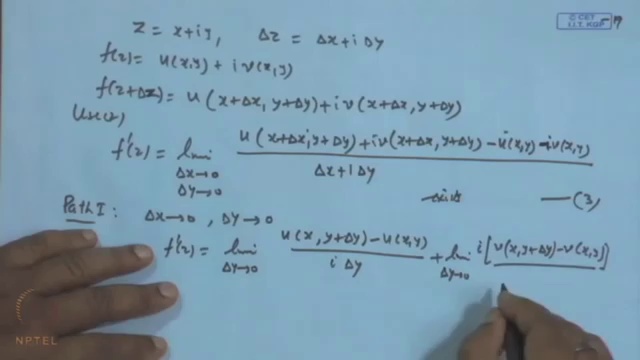 © CET
I.I.T. KGP
z = x+iy, Δz = Δx+iΔy
f(z) = u(x,y) + i v(x,y)
f(z+Δz) = u(x+Δx, y+Δy) + i v(x+Δx, y+Δy)
f'(z) = lim Δx→0 Δy→0 u(x+Δx, y+Δy) + i v(x+Δx, y+Δy) − u(x,y) − i v(x,y) / Δx+iΔy
exists —(3)
Path I : Δx→0, Δy→0
f'(z) = lim Δy→0 u(x, y+Δy) − u(x,y) / iΔy + lim Δy→0 i[v(x, y+Δy) − v(x,y)]
NPTEL